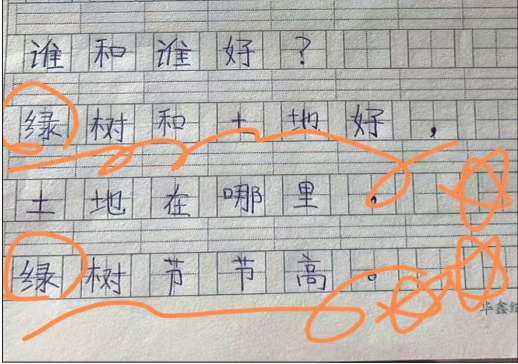 谁和谁好？
绿树和土地好，
土地在哪里，
绿树节节高。
华鑫